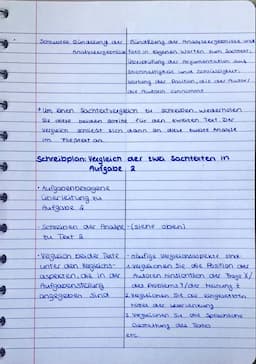 Schluss: Bündelung der
Analyseergebnisse
Bündelung der Analyseergebnisse und
Fazit in eigenen Worten zum Sachtext,
Überprüfung der Argumentation auf
und Schlüssigkeit,
Wertung der Position, die der Autor/
die Autorin einnimmt
* Um einen Sachtextvergleich zu schreiben, wiederholen
Sie diese beiden Schritte für den zweiten Text. Der
Vergleich schließt sich dann an diese zweite Analyse
im an.
Schreibplan: Vergleich der zwei Sachtexten in
Aufgabe 2
- Aufgabenbezogene
Überleitung zu
Aufgabe 2
- Schreiben der Analyse
zu Text 2
- (siehe oben)
- Vergleich beider Texte
unter den Vergleichs-
aspekten, die in der
Aufgabenstellung
angegeben sind
- häufige Vergleichsaspekte sind:
1. Vergleichen Sie die Position der
Autoren hinsichtlich der Frage X/
des Problems Y/der Meinung Z
2. Vergleichen Sie die
3. Vergleichen Sie die sprachliche
Gestaltung des Textes
etc.